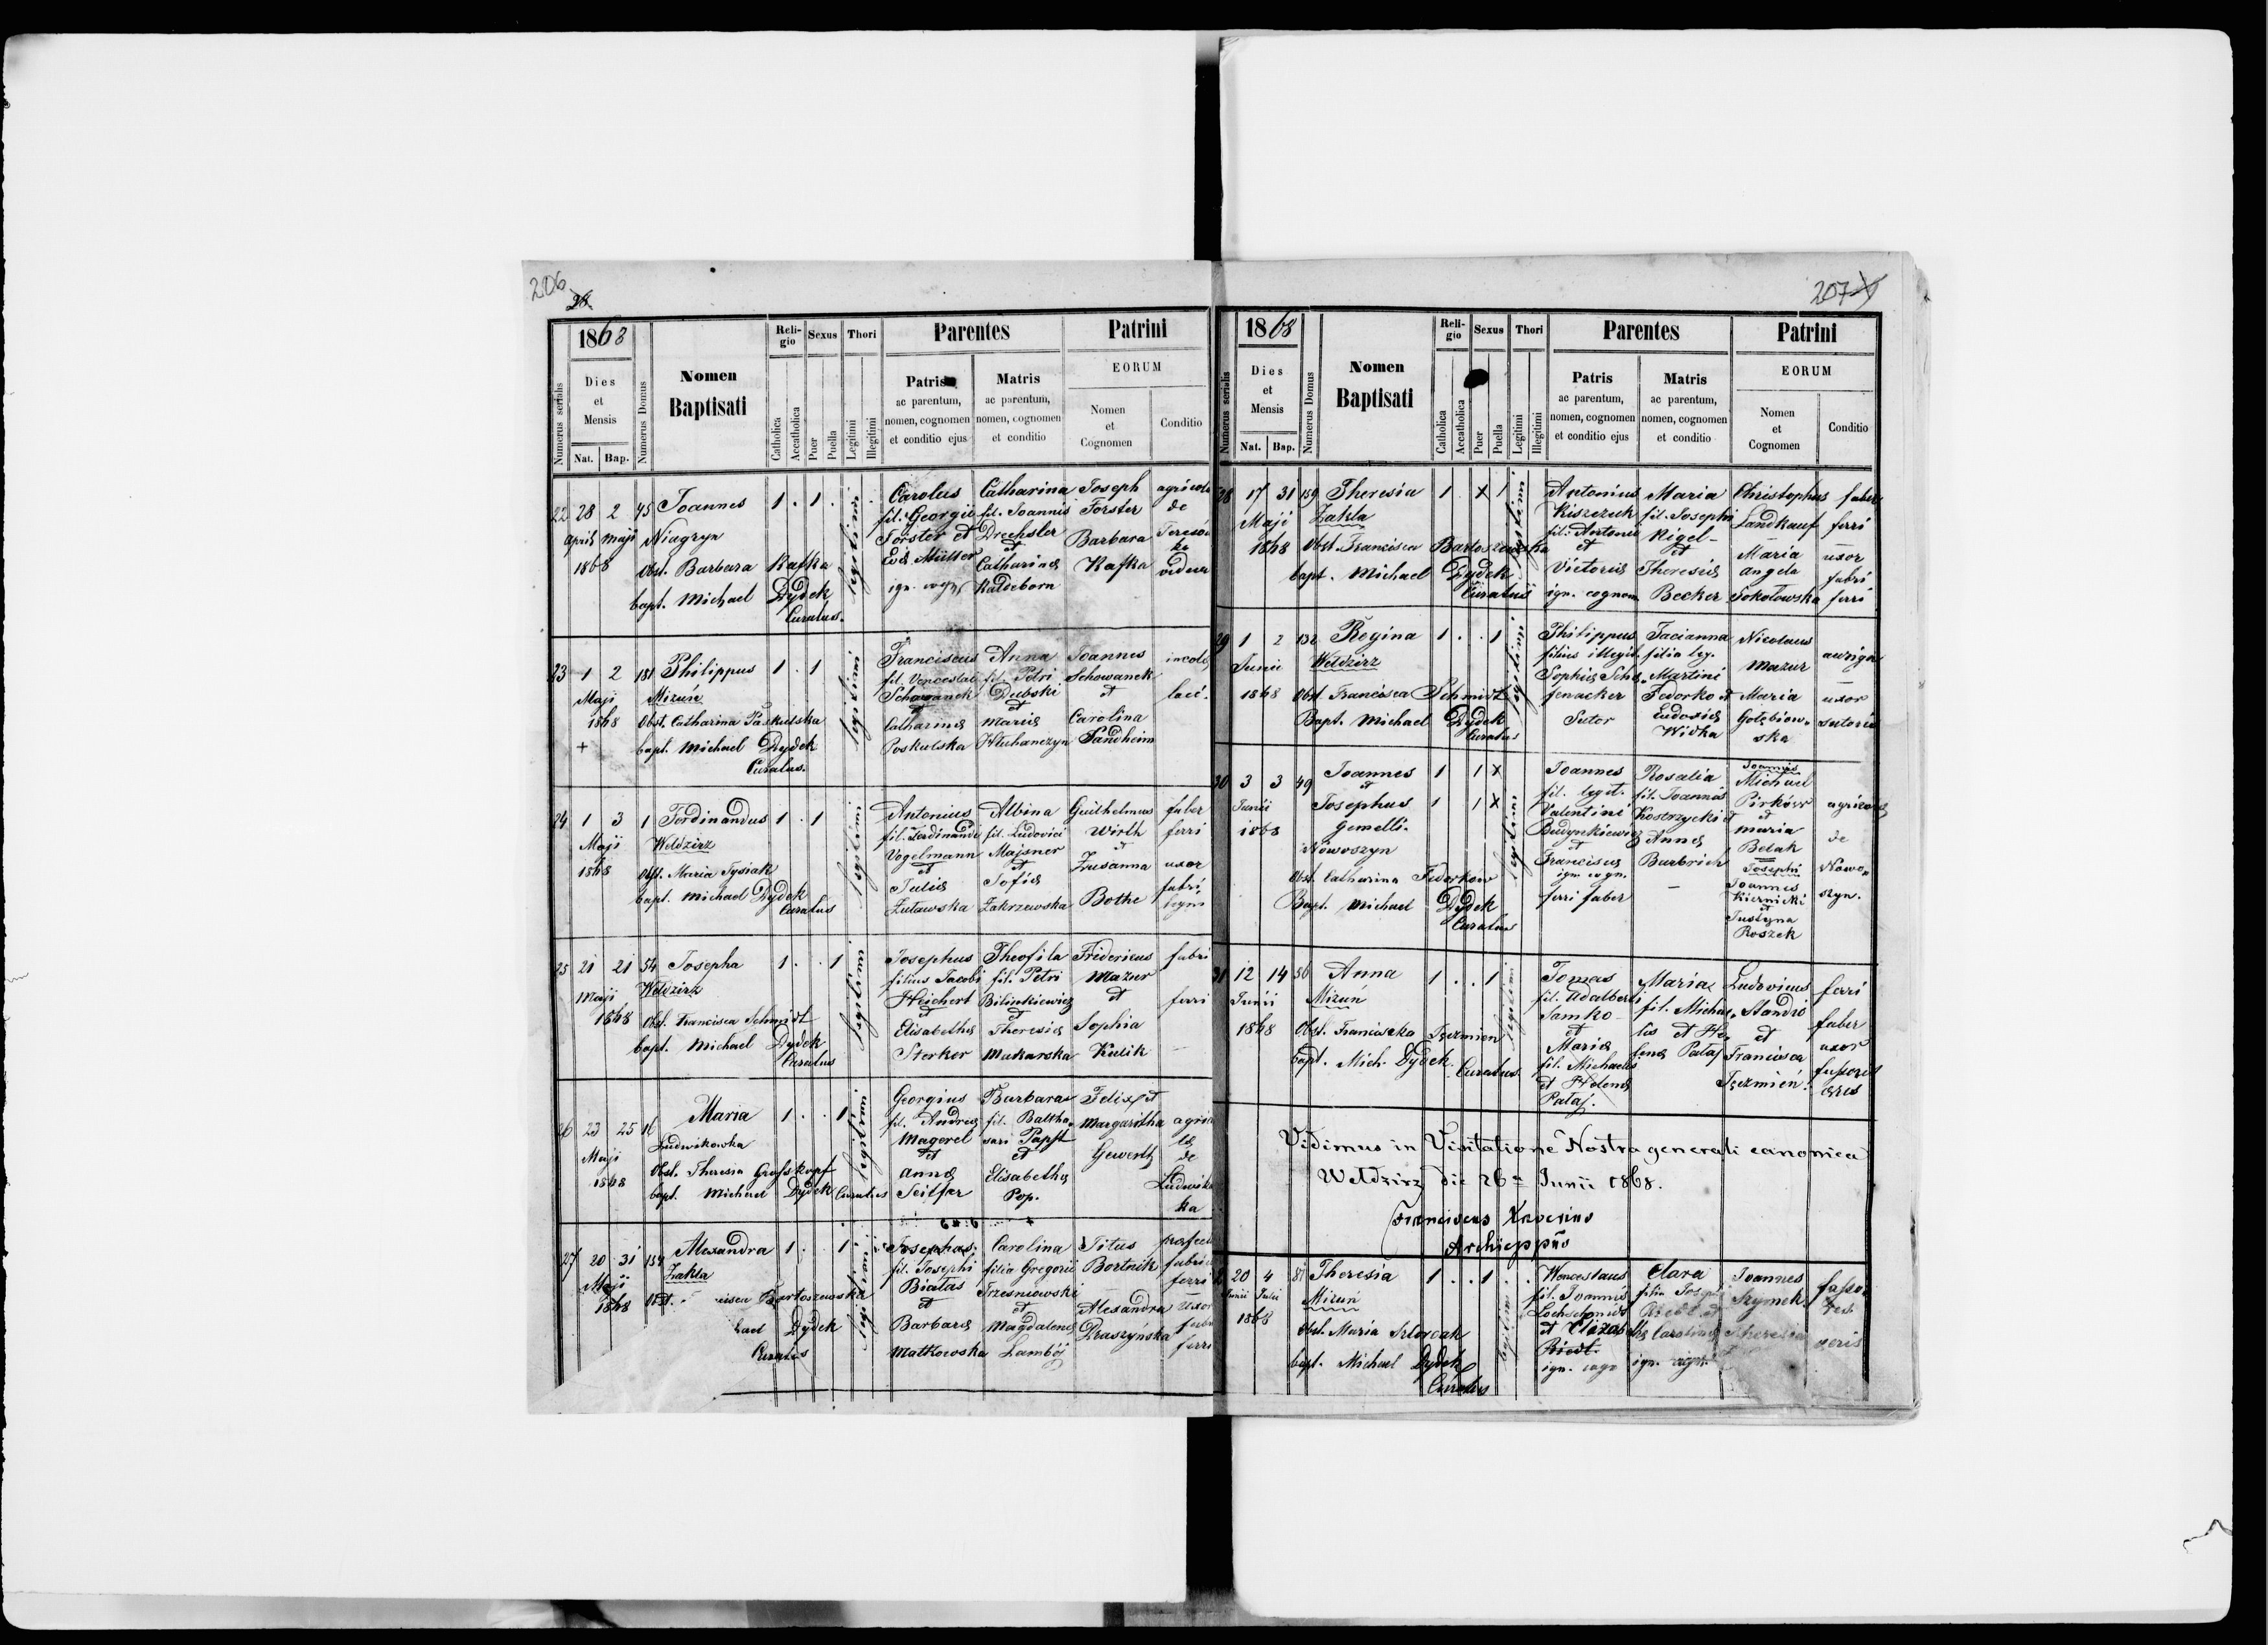 206
28.
1868
Numerus serialis
Dies
et
Mensis
Nat. Bap.
Numerus Domus
Nomen
Baptisati
Reli-
gio
Catholica
Accatholica
Sexus
Puer
Puella
Thori
Legitimi
Illegitimi
Parentes
Patris
ac parentum,
nomen, cognomen
et conditio ejus
Matris
ac parentum,
nomen, cognomen
et conditio
Patrini
EORUM
Nomen
et
Cognomen
Conditio
22 28 2 45 Joannes 1 . 1 .
April Maji Niagryn
1868 Obst. Barbara Kafka
bapt. Michael Dydek
Curatus.
legitimi
Carolus
fil. Georgii
Förster et
Eva Müller
ign. cogn.
Catharina
fil. Joannis
Drechsler
et
Catharina
Kaldeborn
Joseph
Förster
Barbara
Kafka
agricola
de
vidua
23 1 2 181 Philippus 1 . 1
Maji Mizuń
1868 Obst. Catharina Paskulska
+ bapt. Michael Dydek
Curatus.
legitimi
Franciscus
fil. Venceslai
Schowanek
et
Catharina
Poskulska
Anna
fil. Petri
Dubski
et
Maria
Hluhanczyn
Joannes
Schowanek
et
Carolina
Sandheim
incola
loci.
24 1 3 1 Ferdinandus 1 . 1
Maji Weldzirz
1868 Obst. Maria Tysiak
bapt. Michael Dydek
Curatus
legitimi
Antonius
fil. Ferdinandi
Vogelmann
et
Julia
Zutawska
Albina
fil. Ludovici
Majsner
et
Sofia
Zakrzewska
Guilhelmus
Wirth
et
Zusanna
Bothe
faber
ferri
uxor
fabri
25 21 21 54 Josepha 1 . . 1
Maji Weldzirz
1868 Obst. Francisca Schmidt
bapt. Michael Dydek
Curatus
legitimi
Josephus
filius Jacobi
Heichert
et
Elisabetha
Sterker
Theofila
fil. Petri
Bilinkiewicz
et
Theresia
Makarska
Fridericus
Mazur
et
Sophia
Kulik
fabri
ferri
26 23 25 16 Maria 1 . . 1
Maji Ludwikowka
1868 Obst. Theresia Grosskopf
bapt. Michael Dydek Curatus
legitimi
Georgius
fil. Andrea
Magerel
et
Anna
Seitfar
Barbara
fil. Baltha-
sari Papst
et
Elisabetha
Pop.
Felix et
Margaritha
Gewerth
agrico
la
de
Ludwików
ka
27 20 31 154 Alexandra 1 . . 1
Maji Zakla
1868 Obst. Bartoszewska
Dydek
Curatus
legitimi
Josephus
fil. Josephi
Białas
et
Barbara
Matkowska
Carolina
filia Gregorii
Trzesniowski
et
Magdalena
Lambój
Titus
Bortnik
Alexandra
Draszyńska
ferri
uxor
ferri
207
1868
Numerus serialis
Dies
et
Mensis
Nat. Bap.
Numerus Domus
Nomen
Baptisati
Reli-
gio
Catholica
Accatholica
Sexus
Puer
Puella
Thori
Legitimi
Illegitimi
Parentes
Patris
ac parentum,
nomen, cognomen
et conditio ejus
Matris
ac parentum,
nomen, cognomen
et conditio
Patrini
EORUM
Nomen
et
Cognomen
Conditio
28 17 31 159 Theresia 1 . x 1
Maji Zakla
1868 Obst. Francisca Bartoszewska
bapt. Michael Dydek
Curatus
legitimi
Antonius
Kiszczuk
fil. Antonii
et
Victoria
ign. cognom
Maria
fil. Josephi
Rigel
et
Theresia
Becker
Christophus
Landkauf
Maria
Angela
Sokołowska
faber
ferri
uxor
fabri
ferri
29 1 2 132 Regina 1 . . 1
Junii Weldzirz
1868 Obst. Francisca Schmidt
Bapt. Michael Dydek
Curatus
legitimi
Philippus
filius illegit.
Sophia Scho-
fenacker
Sutor
Tacianna
filia leg.
Martini
Fedorko et
Eudoxia
Widka
Nicolaus
Mazur
Maria
Gołębiow-
ska
auriga
uxor
sutoris
30 3 3 49 Joannes 1 1 x
Junii et
1868 Josephus 1 1 x
gemelli.
Nowoszyn
Obst. Catharina Fedorkow
Bapt. Michael Dydek
Curatus
legitimi
Joannes
fil. legit.
Valentini
Budynkiewicz
et
Francisca
ign. cogn.
ferri faber
Rosalia
fil. Joannis
Kostrzycki et
Anna
Burbrich
Joannis
Michael
Pirków
et
Maria
Belak
Josephi
Joannes
Kiernicki
et
Justyna
Roszek
agricola
de
Nowo-
szyn.
31 12 14 56 Anna 1 . . 1
Junii Mizuń
1868 Obst. Franciszka Tezmien
bapt. Mich. Dydek
Curatus
legitimi
Tomas
fil. Adalberti
Samko
et
Maria
fil. Michaelis
et Helena
Pataj.
Maria
fil. Michae-
lis et He-
lena Pataj
Ludovicus
Standio
et
Francisca
Tezmień.
ferri
faber
uxor
fusoris
aeris
Vidimus in Visitatione Nostra generali canonica
Weldzirz die 26a Junii 1868.
Franciscus Xaverius
Archieppus
20 4 81 Theresia 1 . . 1 . .
Junii Julii Mizuń
1868 Obst. Maria Szlapak
bapt. Michael Dydek
Curatus
legitimi
Wenceslaus
fil. Joannis
Lochschmidt
et Elizabetha
Riedl.
ign. cogn.
Clara
filia Josephi
Carolina
ign. cogn.
Joannes
Szymek
Theresia
aeris